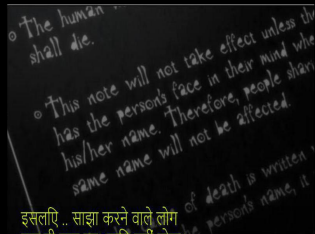 The human
shall die.
This note will not take effect unless the
has the person's face in their mind whe
his/her name. Therefore, people shari
same name will not be affected.
of death is written
the person's name, it
इसलिए .. साझा करने वाले लोग